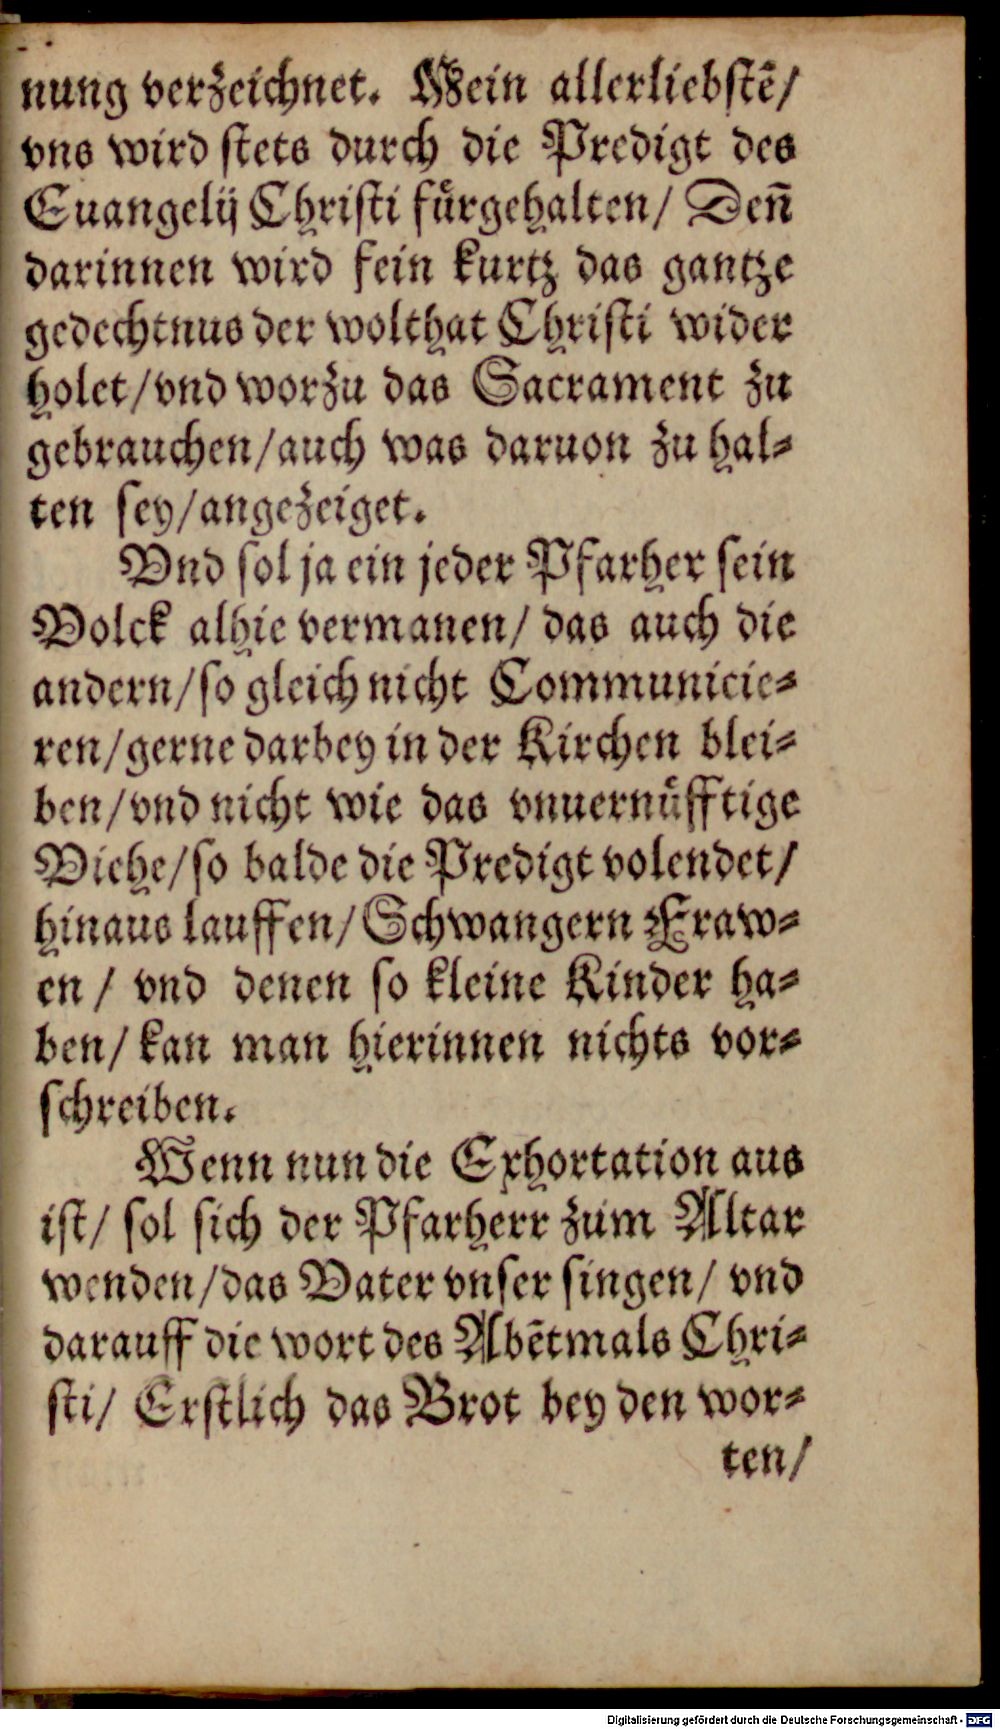 nung verzeichnet. Mein allerliebstē/
vns wird stets durch die Predigt des
Euangelij Christi fürgehalten/ Deñ
darinnen wird fein kurtz das gantze
gedechtnus der wolthat Christi wider
holet/vnd worzu das Sacrament zu
gebrauchen/auch was daruon zu hal⸗
ten sey/angezeiget.
Vnd sol ja ein jeder Pfarher sein
Volck alhie vermanen/ das auch die
andern/so gleich nicht Communicie⸗
ren/gerne darbey in der Kirchen blei⸗
ben/vnd nicht wie das vnuernüfftige
Viehe/so balde die Predigt volendet/
hinaus lauffen/Schwangern Fraw⸗
en / vnd denen so kleine Kinder ha⸗
ben/ kan man hierinnen nichts vor⸗
schreiben.
Wenn nun die Exhortation aus
ist/ sol sich der Pfarherr zum Altar
wenden/das Vater vnser singen/ vnd
darauff die wort des Abētmals Chri⸗
sti/ Erstlich das Brot bey den wor⸗
ten/
Digitalisierung gefördert durch die Deutsche Forschungsgemeinschaft - DFG